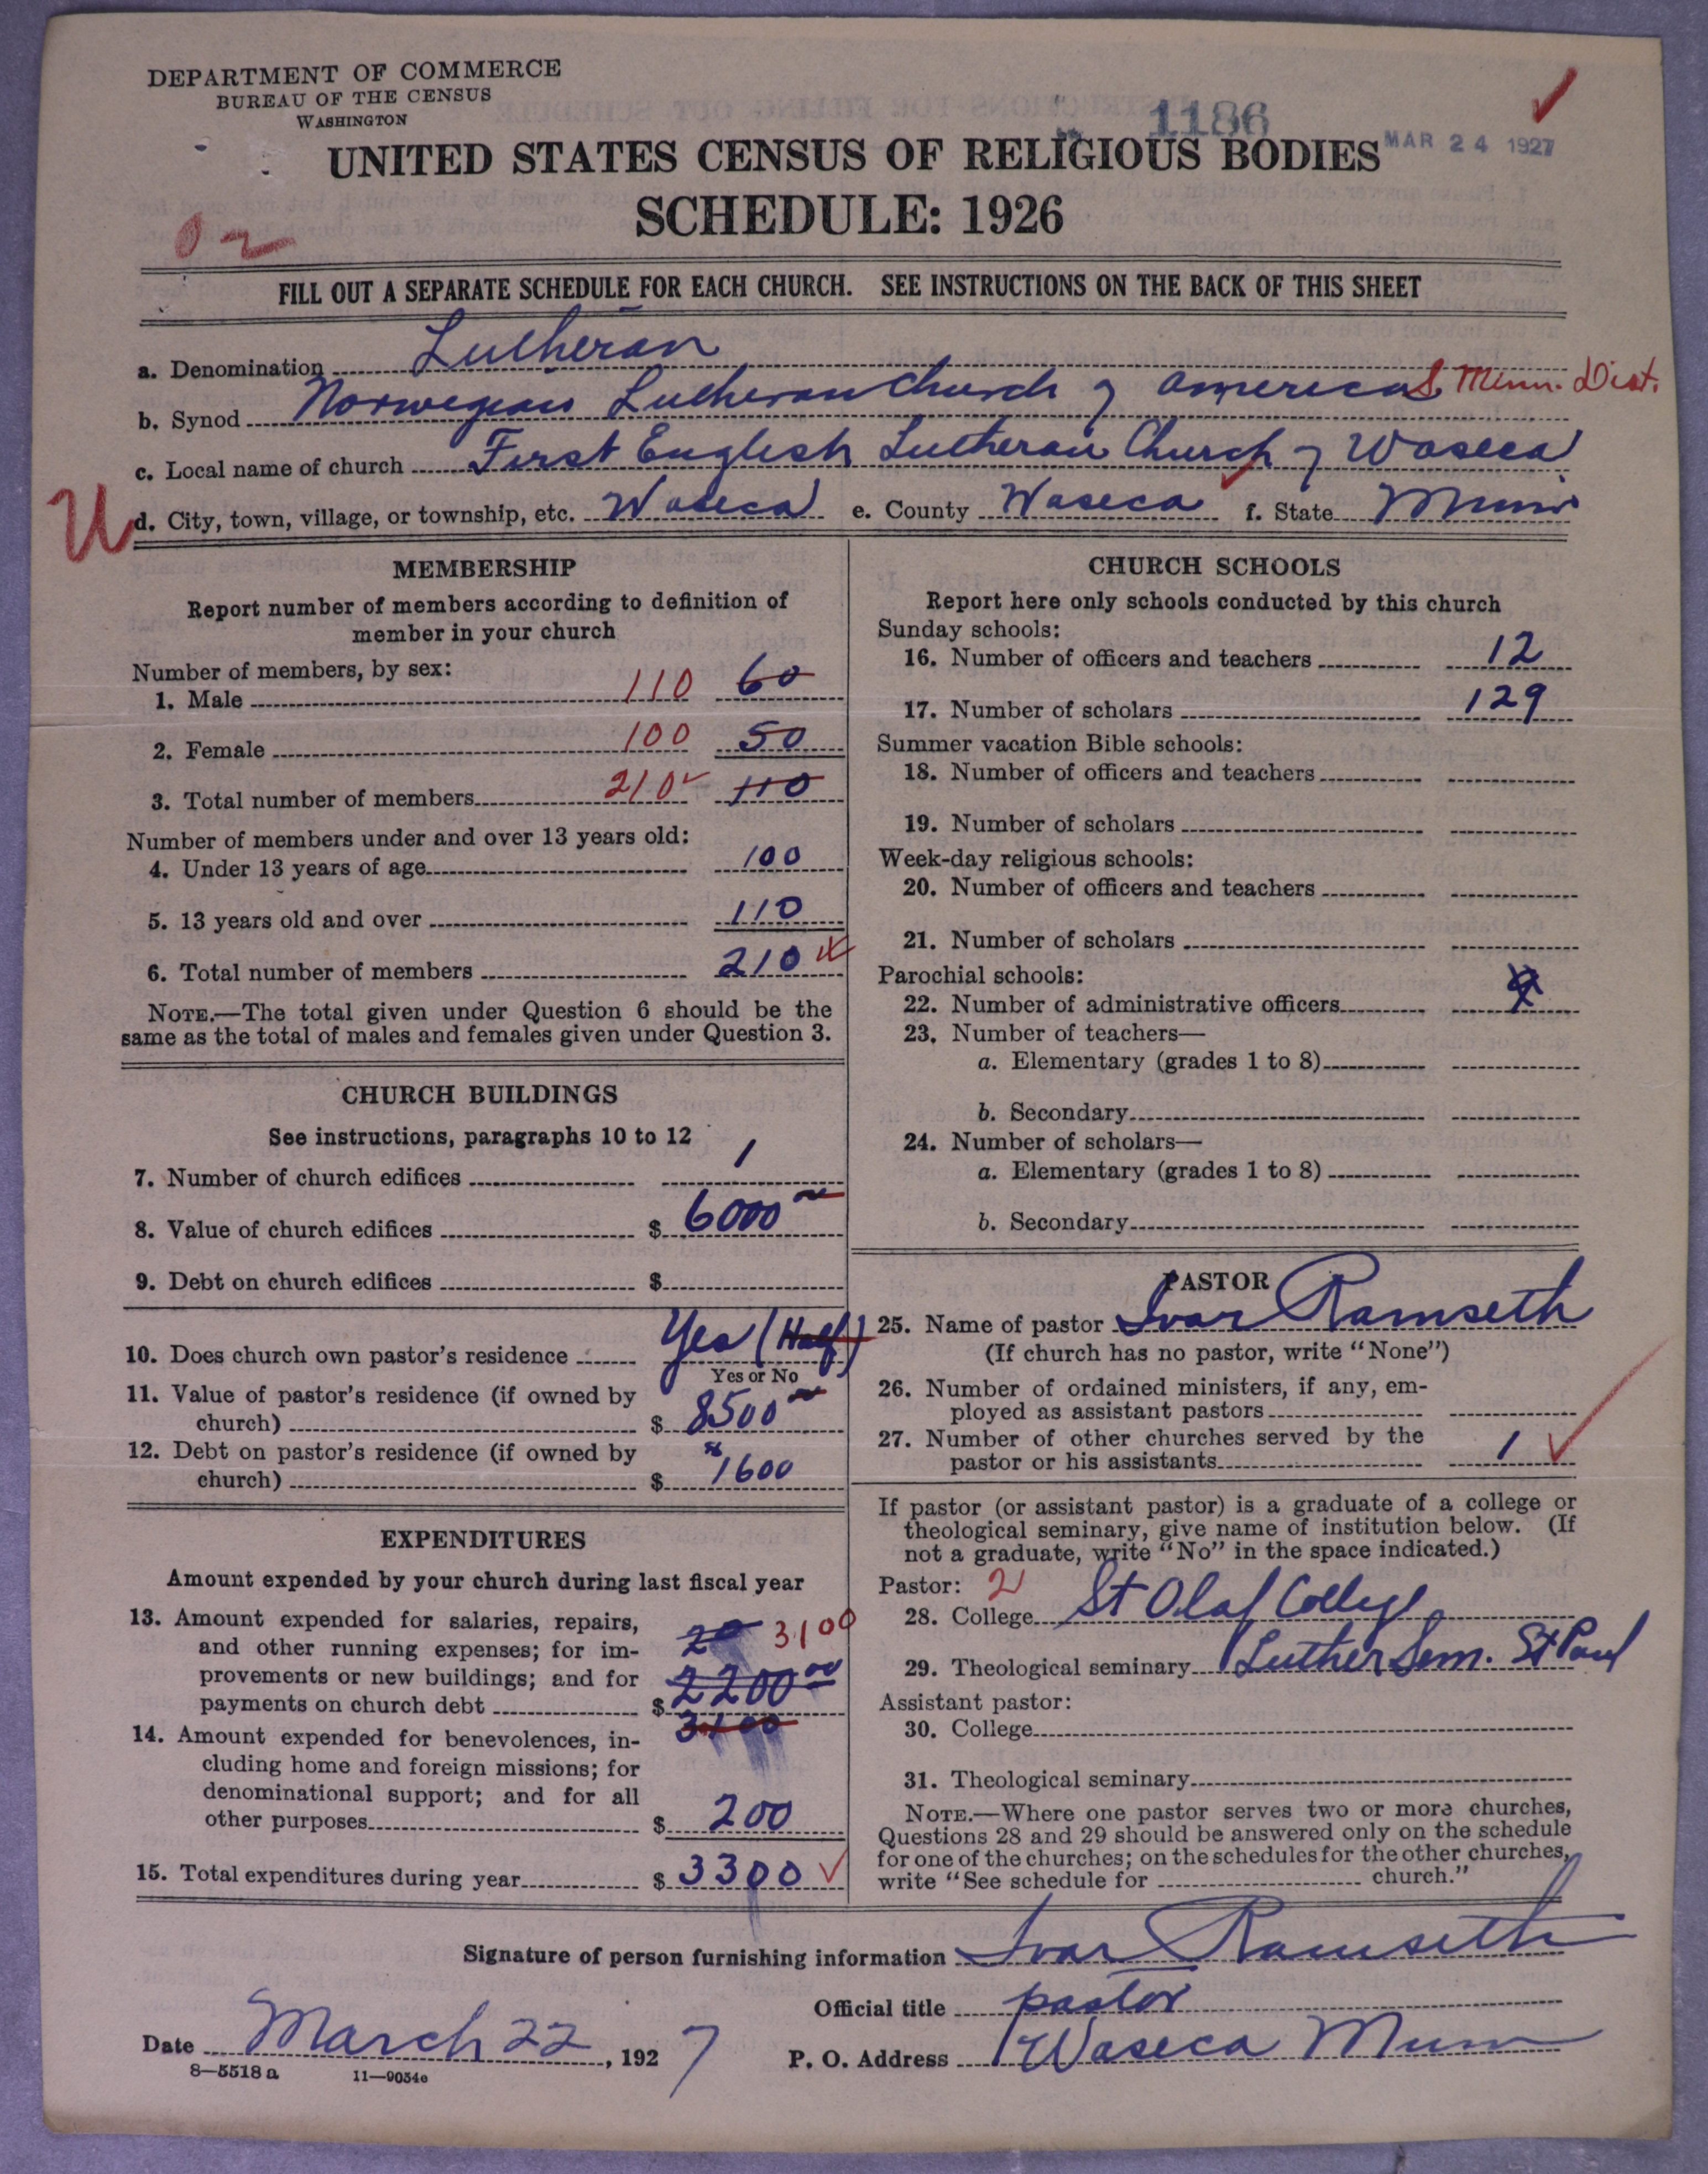 DEPARTMENT OF COMMERCE
BUREAU OF THE CENSUS
WASHINGTON
1186
MAR 24 1927
UNITED STATES CENSUS OF RELIGIOUS BODIES
SCHEDULE: 1926
FILL OUT A SEPARATE SCHEDULE FOR EACH CHURCH. SEE INSTRUCTIONS ON THE BACK OF THIS SHEET
a. Denomination Lutheran
b. Synod Norwegian Lutheran Church of America S Minn. Dist.
c. Local name of church First English Lutheran Church of Waseca
U d. City, town, village, or township, etc. Waseca e. County Waseca f. State Minn
MEMBERSHIP
Report number of members according to definition of
member in your church
Number of members, by sex:
1. Male 110 60
2. Female 100 50
3. Total number of members 210 110
Number of members under and over 13 years old:
4. Under 13 years of age 100
5. 13 years old and over 110
6. Total number of members 210
NOTE.—The total given under Question 6 should be the
same as the total of males and females given under Question 3.
CHURCH BUILDINGS
See instructions, paragraphs 10 to 12
7. Number of church edifices 1
8. Value of church edifices $ 6000
9. Debt on church edifices $
10. Does church own pastor's residence Yes (Half)
Yes or No
11. Value of pastor's residence (if owned by
church) $ 8500
12. Debt on pastor's residence (if owned by
church) $ 1600
EXPENDITURES
Amount expended by your church during last fiscal year
13. Amount expended for salaries, repairs,
and other running expenses; for im- 20 3100
provements or new buildings; and for
payments on church debt $ 2200 00
3100
14. Amount expended for benevolences, in-
cluding home and foreign missions; for
denominational support; and for all
other purposes $ 200
15. Total expenditures during year $ 3300
CHURCH SCHOOLS
Report here only schools conducted by this church
Sunday schools:
16. Number of officers and teachers 12
17. Number of scholars 129
Summer vacation Bible schools:
18. Number of officers and teachers
19. Number of scholars
Week-day religious schools:
20. Number of officers and teachers
21. Number of scholars
Parochial schools:
22. Number of administrative officers
23. Number of teachers—
a. Elementary (grades 1 to 8)
b. Secondary
24. Number of scholars—
a. Elementary (grades 1 to 8)
b. Secondary
PASTOR
25. Name of pastor Ivar Ramseth
(If church has no pastor, write "None")
26. Number of ordained ministers, if any, em-
ployed as assistant pastors
27. Number of other churches served by the
pastor or his assistants 1
If pastor (or assistant pastor) is a graduate of a college or
theological seminary, give name of institution below. (If
not a graduate, write "No" in the space indicated.)
Pastor: 2
28. College St Olaf College
29. Theological seminary Luther Sem. St Paul
Assistant pastor:
30. College
31. Theological seminary
NOTE.—Where one pastor serves two or more churches,
Questions 28 and 29 should be answered only on the schedule
for one of the churches; on the schedules for the other churches,
write "See schedule for church."
Signature of person furnishing information Ivar Ramseth
Official title pastor
Date March 22, 1927 P. O. Address Waseca Minn
8—5518 a 11—9034